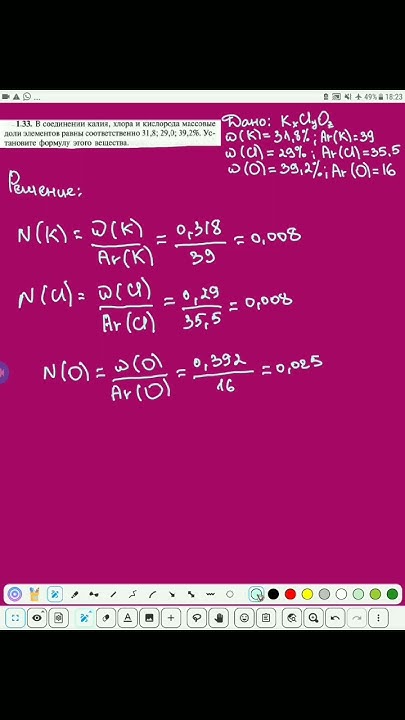 49% 18:23
1.33. В соединении калия, хлора и кислорода массовые
доли элементов равны соответственно 31,8; 29,0; 39,2%. Ус-
тановите формулу этого вещества.
Дано: KxClyOz
ω(K)=31,8%; Ar(K)=39
ω(Cl)=29%; Ar(Cl)=35.5
ω(O)=39,2%; Ar(O)=16
Решение:
N(K) = ω(K)/Ar(K) = 0,318/39 = 0,008
N(Cl) = ω(Cl)/Ar(Cl) = 0,29/35,5 = 0,008
N(O) = ω(O)/Ar(O) = 0,392/16 = 0,025